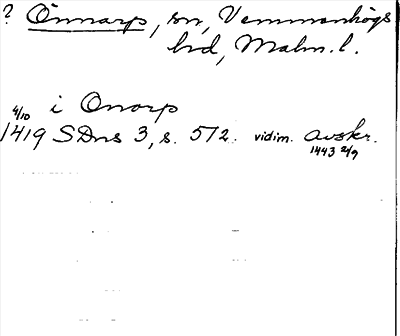 ? Önnarp, sn, Vemmenhögs
hd, Malm. l.
i Onorp
4/10
1419 SDns 3, s. 572. vidim. avskr.
1443 2/9